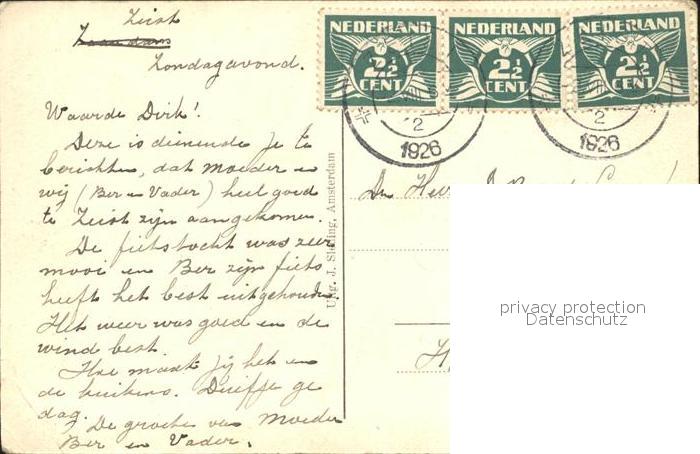 Zeist
Zaandam
Zondagavond.
Waarde Dirk!
Deze is dienende je te
berichten, dat Moeder en
wij (Ber en Vader) heel goed
te Zeist zijn aangekomen.
De fietstocht was zeer
mooi en Ber zijn fiets
heeft het best uitgehouden.
Het weer was goed en de
wind best.
Hoe maakt jij het en
de kuikens. Duifje ge
dag.
De groeten van Moeder
Ber en Vader.
NEDERLAND
2½
CENT
NEDERLAND
2½
CENT
NEDERLAND
2½
CENT
2
1926
2
1926
Uitg. J. Sleding, Amsterdam
Den Heer
privacy protection
Datenschutz